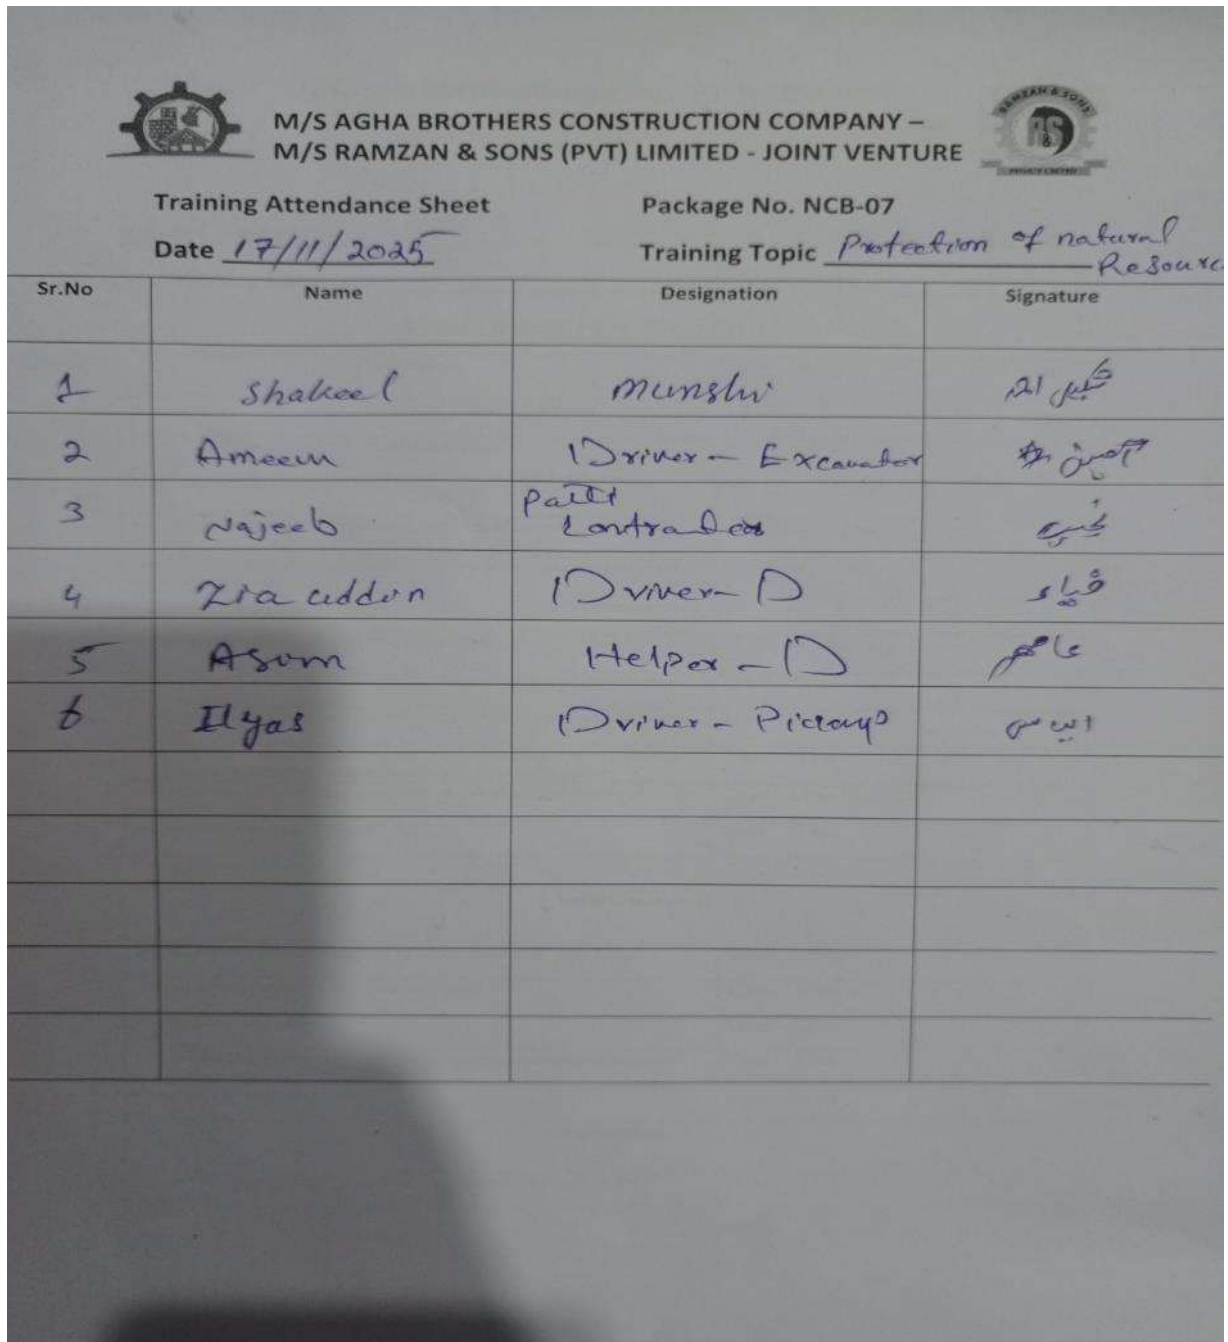 M/S AGHA BROTHERS CONSTRUCTION COMPANY –
M/S RAMZAN & SONS (PVT) LIMITED - JOINT VENTURE
RAMZAN & SONS
R&S
PRIVATE LIMITED
Training Attendance Sheet Package No. NCB-07
Date 17/11/2025 Training Topic Protection of natural
Resourc
Sr.No Name Designation Signature
1 Shakeel munshi شکیل احمد
2 Ameen Driver - Excavator آمین
3 Najeeb
4 Zia uddin Driver - D ضیاء
5 Asim Helper - D عاصم
6 Ilyas Driver - Pickup